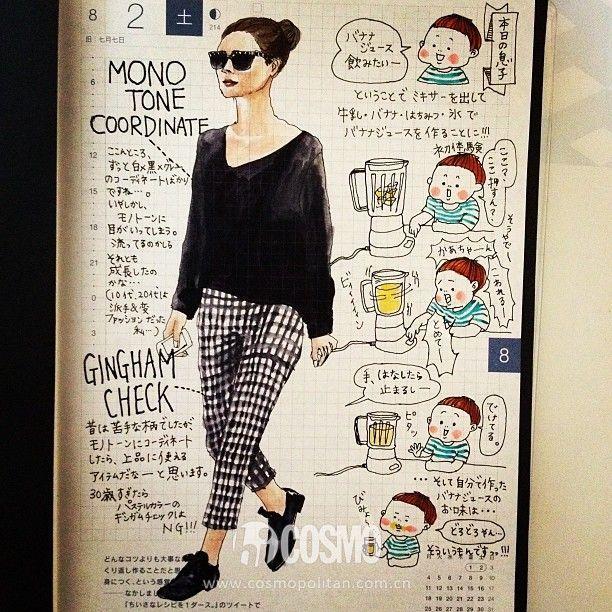 8
2
土
214
旧 七月七日
6
MONO
TONE
COORDINATE
9
12
15
18
21
0
3
ここんところ、
ずっと白×黒×グレー
のコーディネートばかり
ですね…。
いやしかし、
モノトーンに
目がいってしまう。
流ってるのかしら
それとも
成長したの
かな…
(10代、20代は
派手&変
ファッションだった
私…)
GINGHAM
CHECK
昔は苦手な柄でしたが、
モノトーンにコーディネート
したら、上品に使える
アイテムだなーと思います。
30歳すぎたら
パステルカラーの
ギンガムチェックは
NG!!!
どんなコツよりも大事な
くり返し作ることだと思
身につく、という感覚
——なかしまし
『ちいさなレシピを1ダース。』のツイートで
本日の息子
バナナ
ジュース
飲みたいー
ということで ミキサーを出して
牛乳・バナナ・はちみつ・氷で
バナナジュースを作ることに!!!
初体験
ここ?ここ
押すん?
そうやで〜
かあちゃーん
こわれる
とめてー
ビィィィィン
8
手、はなしたら
止まるしー
ピタッ
できてる。
・・・そして自分で作った
バナナジュースの
お味は・・・
びみょー
どろどろやん…
そういうもんです。!!!
COSMO
www.cosmopolitan.com.cn
1 2 3